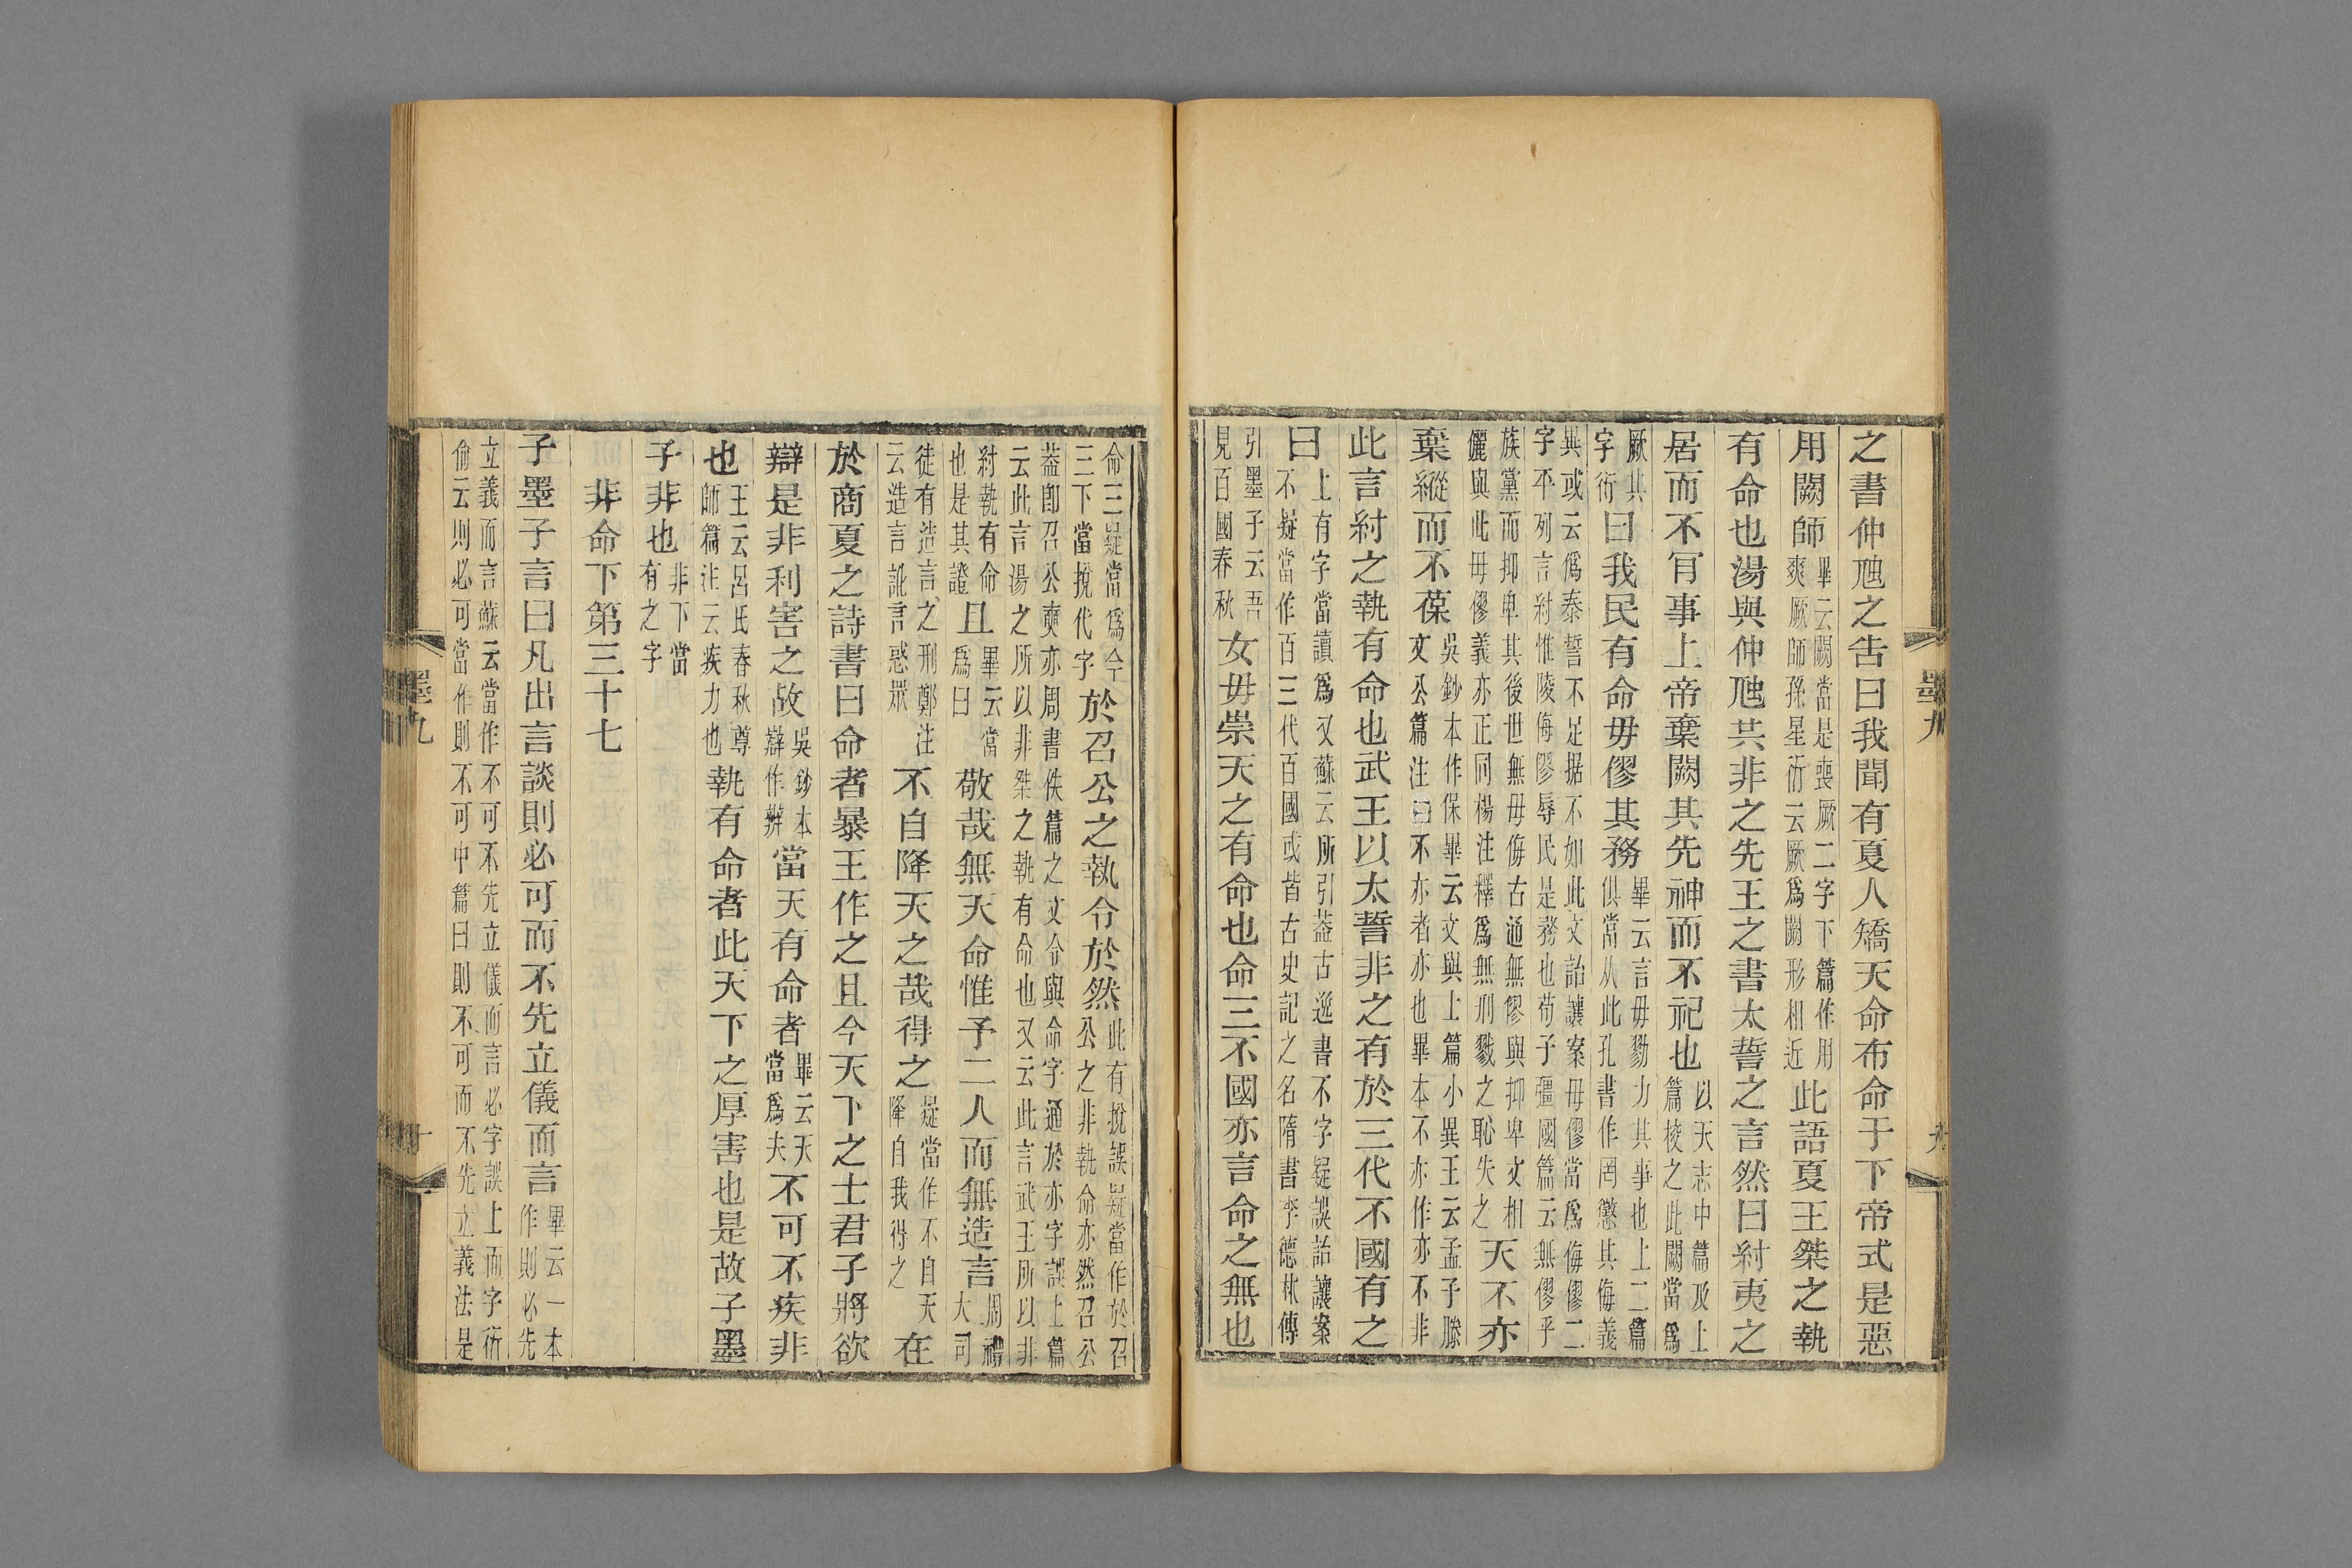 之書仲虺之告曰我聞有夏人矯天命布命于下帝式是惡
用闕師畢云闕當是喪厥二字下篇作用爽厥師孫星衍云厥爲闕形相近此語夏王桀之執
有命也湯與仲虺共非之先王之書太誓之言然曰紂夷之
居而不肎事上帝棄闕其先神而不祀也以天志中篇及上篇校之此闕當爲
厥其字衍曰我民有命毋僇其務畢云言毋勠力其事也上二篇俱當从此孔書作罔懲其侮義
異或云僞泰誓不足据不如此文詒讓案毋僇當爲侮僇二字平列言紂惟陵侮僇辱民是務也荀子彊國篇云無僇乎
族黨而抑卑其後世無毋侮古通無僇與抑卑文相儷與此毋僇義亦正同楊注釋爲無刑戮之恥失之天不亦
棄縱而不葆吳鈔本作保畢云文與上篇小異王云孟子滕文公篇注曰不亦者亦也畢本不亦作亦不非
此言紂之執有命也武王以太誓非之有於三代不國有之
曰上有字當讀爲又蘇云所引蓋古逸書不字疑誤詒讓案不疑當作百三代百國或皆古史記之名隋書李德林傳
引墨子云吾見百國春秋女毋崇天之有命也命三不國亦言命之無也
命三疑當爲今三下當挩代字於召公之執令於然此有挩誤疑當作於召公之非執命亦然召公
蓋卽召公奭亦周書佚篇之文令與命字通於亦字誤上篇云此言湯之所以非桀之執有命也又云此言武王所以非
紂執有命也是其證且畢云當爲曰敬哉無天命惟予二人而無造言周禮大司
徒有造言之刑鄭注云造言訛言惑眾不自降天之哉得之疑當作不自天降自我得之在
於商夏之詩書曰命者暴王作之且今天下之士君子將欲
辯是非利害之故吳鈔本辯作辨當天有命者畢云天當爲夫不可不疾非
也王云呂氏春秋尊師篇注云疾力也執有命者此天下之厚害也是故子墨
子非也非下當有之字
非命下第三十七
子墨子言曰凡出言談則必可而不先立儀而言畢云一本作則必先
立義而言蘇云當作不可不先立儀而言必字誤上而字衍俞云則必可當作則不可中篇曰則不可而不先立義法是
墨九
九
墨九
十